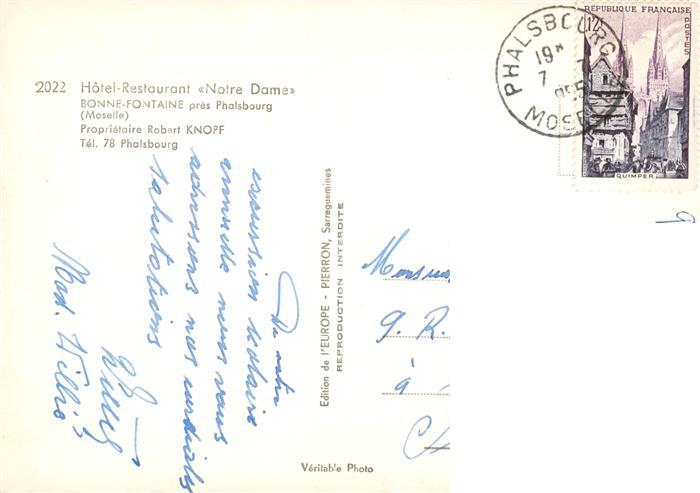 2022 Hôtel-Restaurant «Notre Dame»
BONNE-FONTAINE près Phalsbourg
(Moselle)
Propriétaire Robert KNOPF
Tél. 78 Phalsbourg
De notre
excursion scolaire
annuelle nous vous
adressons nos cordiales
salutations
Mad. Willis
Edition de l'EUROPE - PIERRON, Sarreguemines
REPRODUCTION INTERDITE
Véritable Photo
RÉPUBLIQUE FRANÇAISE
12f
POSTES
QUIMPER
PHALSBOURG
19H
7 - 7
MOSELLE
G. R.
à
9